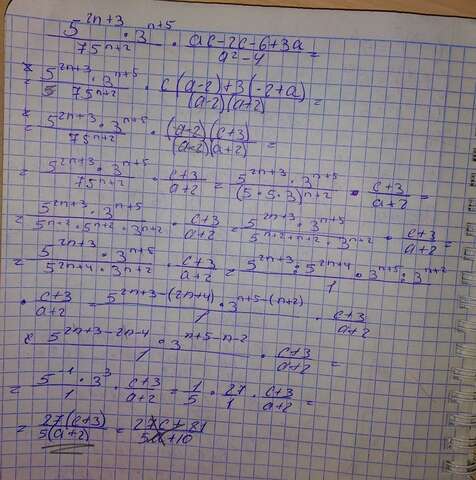 5^{2n+3} · 3^{n+5} / 75^{n+2} · ac-2c-6+3a / a²-4 =
= 5^{2n+3} · 3^{n+5} / 75^{n+2} · c(a-2)+3(-2+a) / (a-2)(a+2) =
= 5^{2n+3} · 3^{n+5} / 75^{n+2} · (a-2)(c+3) / (a-2)(a+2) =
= 5^{2n+3} · 3^{n+5} / 75^{n+2} · c+3 / a+2 = 5^{2n+3} · 3^{n+5} / (5·5·3)^{n+2} · c+3 / a+2 =
= 5^{2n+3} · 3^{n+5} / 5^{n+2} · 5^{n+2} · 3^{n+2} · c+3 / a+2 = 5^{2n+3} · 3^{n+5} / 5^{n+2+n+2} · 3^{n+2} · c+3 / a+2 =
= 5^{2n+3} · 3^{n+5} / 5^{2n+4} · 3^{n+2} · c+3 / a+2 = 5^{2n+3} : 5^{2n+4} · 3^{n+5} : 3^{n+2} / 1
· c+3 / a+2 = 5^{2n+3-(2n+4)} · 3^{n+5-(n+2)} / 1 · c+3 / a+2
= 5^{2n+3-2n-4} · 3^{n+5-n-2} / 1 · c+3 / a+2 =
= 5^{-1} · 3^{3} / 1 · c+3 / a+2 = 1 / 5 · 27 / 1 · c+3 / a+2 =
= 27(c+3) / 5(a+2) = 27c+81 / 5a+10